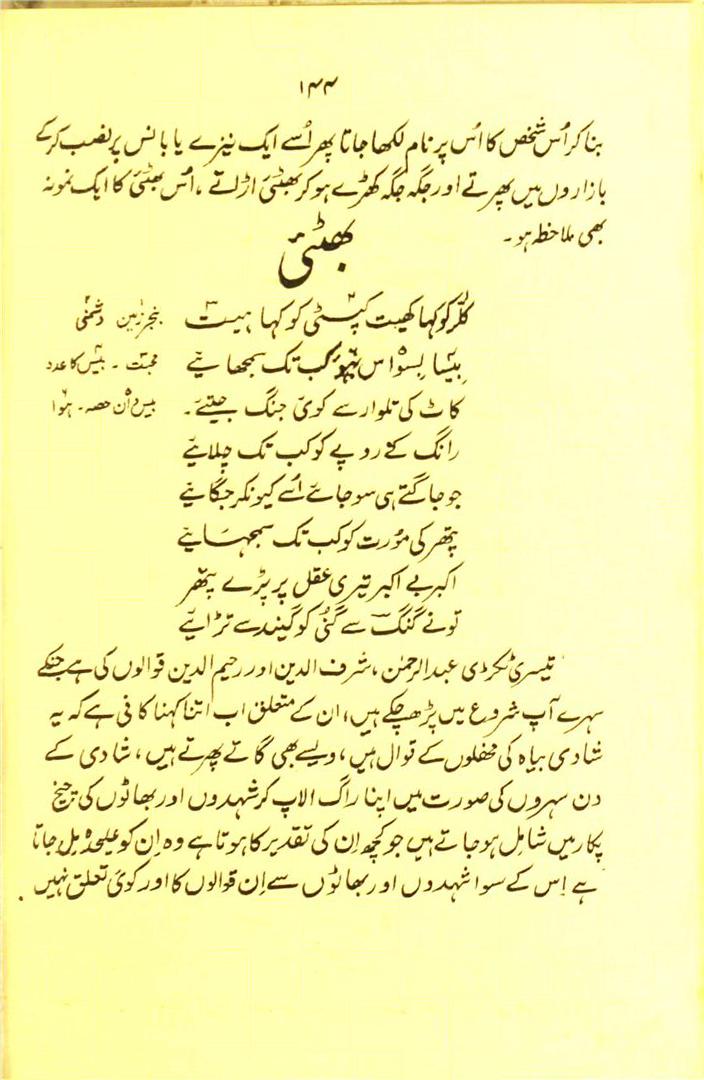 ۱۴۴
بنا کر اُس شخص کا اُس پر نام لکھا جاتا پھر اُسے ایک نیزے یا بانس پر نصب کر کے
بازاروں میں پھرتے اور جگہ جگہ کھڑے ہو کر بھٹئی اڑاتے ، اُس بھٹئی کا ایک نمونہ
بھی ملاحظہ ہو ۔
بھٹئی
کلّر کو کہا کھیت کپٹی کو کہا ہیت بنجر زمین دشمنی
بیسا بسوا اس کب تک سمجھائیے محبت ۔ بیس کا عدد
کاٹ کی تلوار سے کوئی جنگ جیتیے ۔ بیسواں حصہ ۔ ہوا
رانگ کے روپے کو کب تک چلائیے
جو جاگتے ہی سو جائے اُسے کیونکر جگائیے
پتھر کی مُورت کو کب تک سمجہائیے
اکبر بے اکبر تیری عقل پر پڑے پتھر
تو نے گنگ سے گنُی کو گیند سے تڑائیے
تیسری ٹکڑی عبدالرحمٰن ، شرف الدین اور رحیم الدین قوالوں کی ہے جنکے
سہرے آپ شروع میں پڑھ چکے ہیں ، ان کے متعلق اب اتنا کہنا کافی ہے کہ یہ
شادی بیاہ کی محفلوں کے قوال ہیں ، ویسے بھی گاتے پھرتے ہیں ، شادی کے
دن سہروں کی صورت میں اپنا راگ الاپ کر شہدوں اور بھاٹوں کی چیخ
پکار میں شامل ہو جاتے ہیں جو کچھ اِن کی تقدیر کا ہوتا ہے وہ اِن کو علیحدہ مل جاتا
ہے اِس کے سوا شہدوں اور بھاٹوں سے اِن قوالوں کا اور کوئی تعلق نہیں ۔